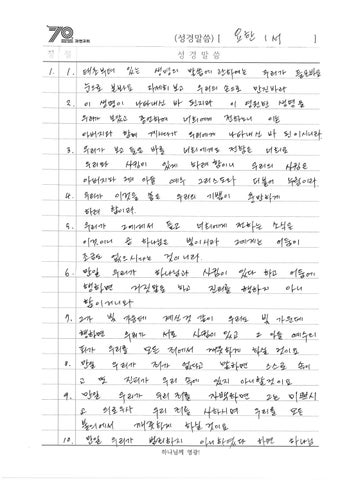 70 (성경말씀) [ 요한 1서 ]
장 절 성경말씀
1. 1. 태초부터 있는 생명의 말씀에 관하여는 우리가 들은바요
눈으로 본바요 자세히 보고 우리의 손으로 만진바라
2. 이 생명이 나타내신 바 된지라 이 영원한 생명을
우리가 보았고 증언하여 너희에게 전하노니 이는
아버지와 함께 계시다가 우리에게 나타내신 바 된 이시니라
3. 우리가 보고 들은 바를 너희에게도 전함은 너희로
우리와 사귐이 있게 하려 함이니 우리의 사귐은
아버지와 그의 아들 예수 그리스도와 더불어 누림이라
4. 우리가 이것을 씀은 우리의 기쁨이 충만하게
하려 함이라
5. 우리가 그에게서 듣고 너희에게 전하는 소식은
이것이니 곧 하나님은 빛이시라 그에게는 어둠이
조금도 없으시다는 것이니라
6. 만일 우리가 하나님과 사귐이 있다 하고 어둠에
행하면 거짓말을 하고 진리를 행하지 아니
함이거니와
7. 그가 빛 가운데 계신것 같이 우리도 빛 가운데
행하면 우리가 서로 사귐이 있고 그 아들 예수의
피가 우리를 모든 죄에서 깨끗하게 하실 것이요
8. 만일 우리가 죄가 없다고 말하면 스스로 속이
고 또 진리가 우리 속에 있지 아니할것이요
9. 만일 우리가 우리 죄를 자백하면 그는 미쁘시
고 의로우사 우리 죄를 사하시며 우리를 모든
불의에서 깨끗하게 하실 것이요
10. 만일 우리가 범죄하지 아니하였다 하면 하나님
하나님께 영광!